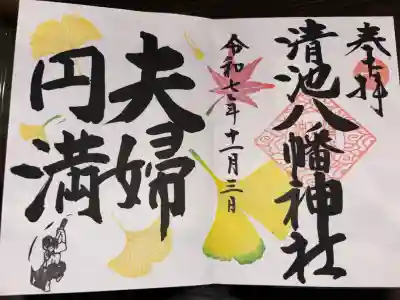 奉拝
清池八幡神社
令和七年十一月三日
夫婦
円満